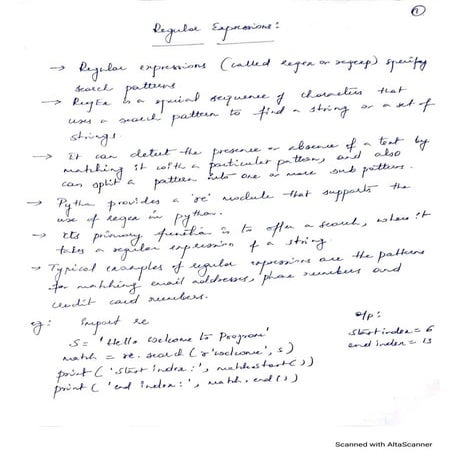 1
Regular Expressions:
→ Regular expressions (called regex or regexp) specify
search pattern
→ RegEx is a special sequence of characters that
uses a search pattern to find a string or a set of
strings.
→ It can detect the presence or absence of a text by
matching it with a particular pattern, and also
can split a pattern into one or more sub patterns.
→ Python provides a 're' module that supports the
use of regex in python.
→ Its primary function is to offer a search, where it
takes a regular expression & a string.
→ Typical examples of regular expressions are the patterns
for matching email addresses, phone numbers and
credit card numbers.
eg: import re
S = 'Hello Welcome to Program'
match = re.search(r'welcome', s)
print('Start index:', match.start())
print('end index:', match.end())
o/p:
start index = 6
end index = 13
Scanned with AltaScanner